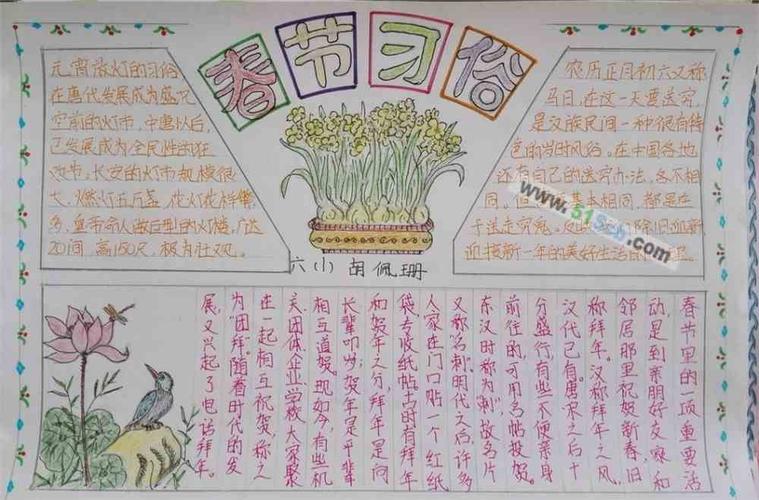 春节习俗
元宵放灯的习俗
在唐代发展成为盛况
空前的灯市,中唐以后,
已发展成为全民性的狂
欢节。长安的灯市规模很
大,燃灯五万盏,花灯花样繁
多,皇帝命人做巨型的灯楼,广达
20间,高150尺,极为壮观。
农历正月初六又称
马日,在这一天要送穷,
是汉族民间一种很有特
色的岁时风俗。在中国各地
还有自己的送穷办法,各不相
同,但基本相同,都是在
于送走穷鬼。反除旧迎新
迎接新一年的美好生活
www.515zb.com
六(1)胡佩珊
春节里的一项重要活
动,是到亲朋好友家和
邻居那里祝贺新春,旧
称拜年。汉称拜年之风,
汉代已有。唐宋之后十
分盛行,有些不便亲身
前往的,可用名帖投贺。
东汉时称为"刺",故名片
又称"名刺"。明代之后,许多
人家在门口贴一个红纸
袋,专收纸帖。古时有拜年
和贺年之分,拜年是向
长辈叩岁;贺年是平辈
相互道贺。现如今,有些机
关、团体、企业、学校,大家聚
在一起相互祝贺,称之
为"团拜"。随着时代的发
展,又兴起了电话拜年。